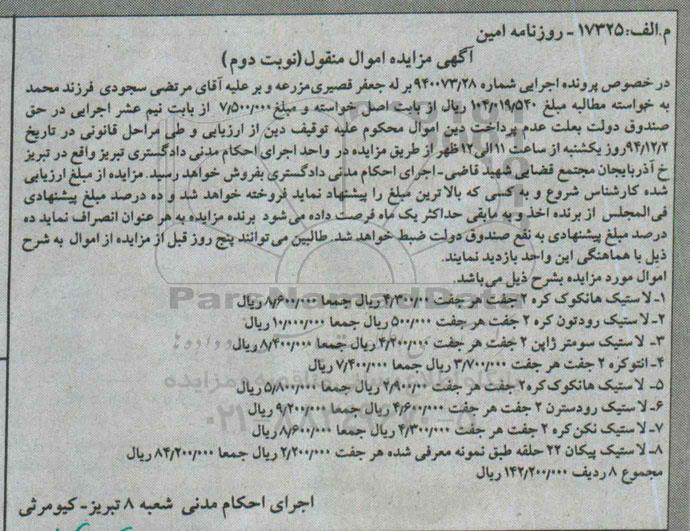 م.الف:۱۷۳۲۵ - روزنامه امین
آگهی مزایده اموال منقول(نوبت دوم)
در خصوص پرونده اجرایی شماره ۹۴۰۰۷۳/۲۸ بر له جعفر قصیری‌مزرعه و بر علیه آقای مرتضی سجودی فرزند محمد
به خواسته مطالبه مبلغ ۱۰۴/۰۱۹/۵۴۰ ریال از بابت اصل خواسته و مبلغ ۷/۵۰۰/۰۰۰ از بابت نیم عشر اجرایی در حق
صندوق دولت بعلت عدم پرداخت دین اموال محکوم علیه توقیف دین از ارزیابی و طی مراحل قانونی در تاریخ
۹۴/۱۲/۲روز یکشنبه از ساعت ۱۱الی۱۲ظهر از طریق مزایده در واحد اجرای احکام مدنی دادگستری تبریز واقع در تبریز
خ آذربایجان مجتمع قضایی شهید قاضی-اجرای احکام مدنی دادگستری بفروش خواهد رسید. مزایده از مبلغ ارزیابی
شده کارشناس شروع و به کسی که بالاترین مبلغ را پیشنهاد نماید فروخته خواهد شد و ده درصد مبلغ پیشنهادی
فی‌المجلس از برنده اخذ و به مابقی حداکثر یک ماه فرصت داده می‌شود برنده مزایده به هر عنوان انصراف نماید ده
درصد مبلغ پیشنهادی به نفع صندوق دولت ضبط خواهد شد. طالبین می‌توانند پنج روز قبل از مزایده از اموال به شرح
ذیل با هماهنگی این واحد بازدید نمایند.
اموال مورد مزایده بشرح ذیل می‌باشد.
۱-لاستیک هانکوک کره ۲ جفت هر جفت ۴/۳۰۰/۰۰ ریال جمعا ۸/۶۰۰/۰۰۰ ریال
۲-لاستیک رودتون کره ۲ جفت هر جفت ۵۰۰/۰۰۰ ریال جمعا ۱۰/۰۰۰/۰۰۰ ریال
۳- لاستیک سومتر ژاپن ۲ جفت هر جفت ۴/۲۰۰/۰۰۰ ریال جمعا ۸/۴۰۰/۰۰۰ ریال
۴-انتوکره ۲ جفت هر جفت ۳/۷۰۰/۰۰۰ ریال جمعا ۷/۴۰۰/۰۰۰ ریال
۵- لاستیک هانکوک کره۲ جفت هر جفت ۲/۹۰۰/۰۰۰ ریال جمعا ۵/۸۰۰/۰۰۰ ریال
۶-لاستیک رودسترن ۲ جفت هر جفت ۴/۶۰۰/۰۰۰ ریال جمعا ۹/۲۰۰/۰۰۰ ریال
۷-لاستیک نکن‌کره ۲ جفت هر جفت ۴/۳۰۰/۰۰۰ ریال جمعا ۸/۶۰۰/۰۰۰ ریال
۸-لاستیک پیکان ۲۲ حلقه طبق نمونه معرفی شده هر جفت ۲/۲۰۰/۰۰۰ ریال جمعا ۸۴/۲۰۰/۰۰۰ ریال
مجموع ۸ ردیف ۱۴۲/۲۰۰/۰۰۰ ریال
اجرای احکام مدنی شعبه ۸ تبریز-کیومرثی
ParsNamadData